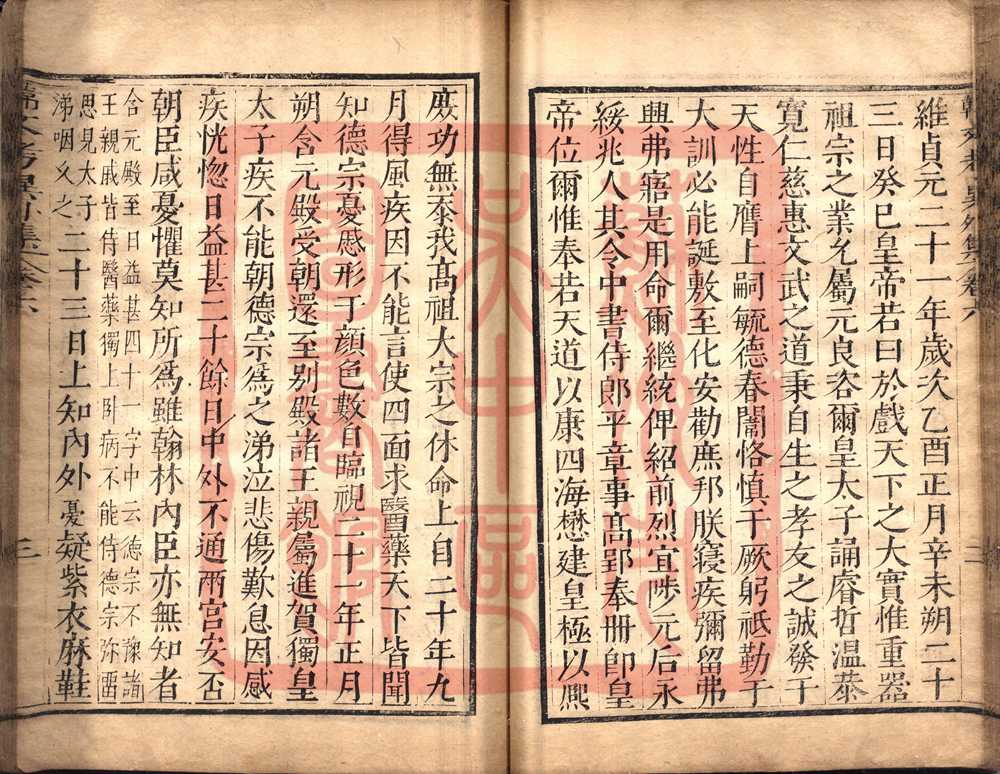 維貞元二十一年歲次乙酉正月辛未朔二十
三日癸巳皇帝若曰於戲天下之大實惟重器
祖宗之業允屬元良咨爾皇太子誦睿哲溫恭
寬仁慈惠文武之道秉自生之孝友之誠發于
天性自膺上嗣毓德春闈恪慎于厥躬祗勤于
大訓必能誕敷至化安勸庶邦朕寢疾彌留弗
興弗寤是用命爾繼統俾紹前烈宜陟元后永
綏兆人其令中書侍郎平章事高郢奉冊即皇
帝位爾惟奉若天道以康四海懋建皇極以熈
二
庻功無忝我高祖大宗之休命上自二十年九
月得風疾因不能言使四面求醫藥天下皆聞
知德宗憂慼形于顔色數自臨視二十一年正月
朔含元殿受朝還至别殿諸王親屬進賀獨皇
太子疾不能朝德宗為之涕泣悲傷歎息因感
疾恍惚日益甚二十餘日中外不通兩宮安否
朝臣咸憂懼莫知所為雖翰林內臣亦無知者
含元殿至日益甚四十一字中云德宗不豫諸
王親戚皆侍醫藥獨上卧病不能侍德宗弥畱
思見太子
涕咽久之
二十三日上知內外憂疑紫衣麻鞋
三
韓文考異外集卷六